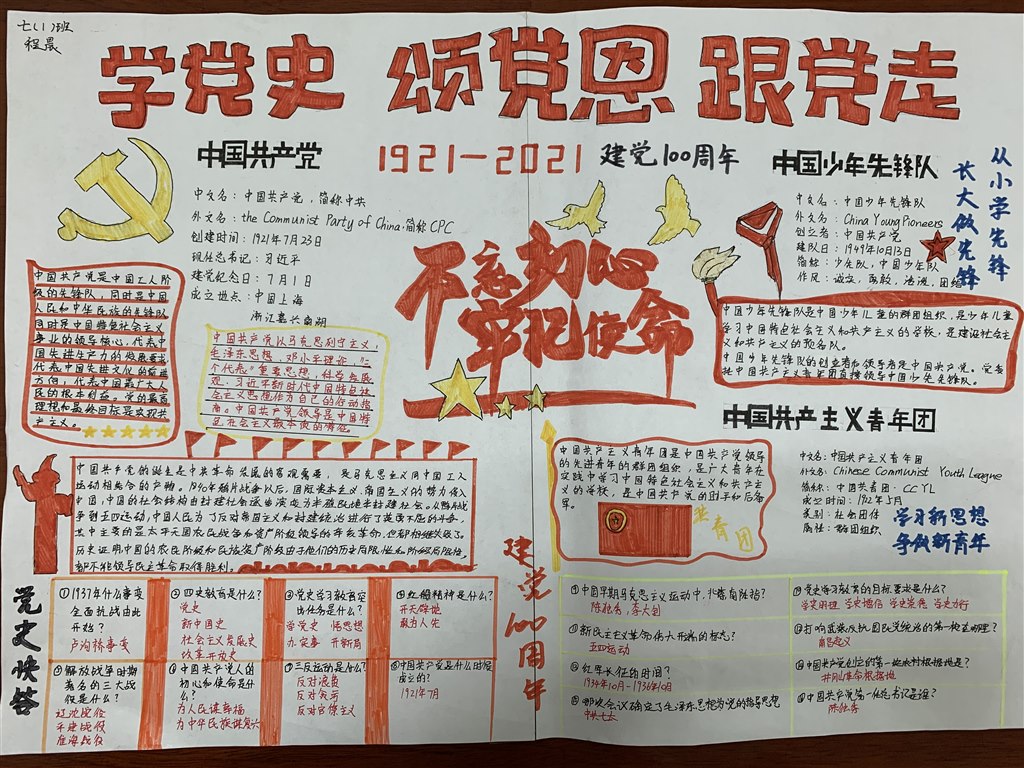 七(1)班
程晨
学党史 颂党恩 跟党走
中国共产党
1921—2021 建党100周年
中国少年先锋队
从小学先锋
长大做先锋
中文名：中国共产党，简称中共
外文名：the Communist Party of China.简称CPC
创建时间：1921年7月23日
现任总书记：习近平
建党纪念日：7月1日
成立地点：中国上海
浙江嘉兴南湖
不忘初心
牢记使命
中文名：中国少年先锋队
外文名：China Young Pioneers
创立者：中国共产党
建队日：1949年10月13日
简称：少先队，中国少年队
作风：诚实，勇敢，活泼，团结
中国共产党是中国工人阶
级的先锋队，同时是中国
人民和中华民族的先锋队
同时是中国特色社会主义
事业的领导核心，代表中
国先进生产力的发展要求
代表中国先进文化的前进
方向，代表中国最广大人
民的根本利益。党的最高
理想和最终目标是实现共
产主义。
中国共产党以马克思列宁主义，
毛泽东思想，邓小平理论，“三
个代表”重要思想，科学发展
观，习近平新时代中国特色社
会主义思想作为自己的行动指
南。中国共产党领导是中国特
色社会主义最本质的特征
中国少年先锋队是中国少年儿童的群团组织，是少年儿童
学习中国特色社会主义和共产主义的学校，是建设社会主
义和共产主义的预备队。
中国少年先锋队的创立者和领导者是中国共产党。党委
托中国共产主义青年团直接领导中国少先先锋队。
中国共产主义青年团
中国共产党的诞生是中共革命发展的客观需要，是马克思主义同中国工人
运动相结合的产物。1840年鸦片战争以后，国际资本主义，帝国主义的势力侵入
中国，中国的社会结构由封建社会逐步演变为半殖民地半封建社会。从鸦片战
争到五四运动，中国人民为了反对帝国主义和封建统治进行了英勇不屈的斗争，
其中主要的是太平天国农民战争和资产阶级领导的辛亥革命，但都相继失败了。
历史证明，中国的农民阶级和民族资产阶级由于他们的历史局限性和阶级局限性，
都不能领导民主革命取得胜利。
中国共产主义青年团是中国共产党领导
的先进青年的群团组织，是广大青年在
实践中学习中国特色社会主义和共产主
义的学校，是中国共产党的助手和后备
军。
共青团
中文名：中国共产主义青年团
外文名：Chinese Communist Youth League
简称：中国共青团：CCYL
成立时间：1922年5月
类别：社会团体
属性：群团组织
学习新思想
争做新青年
党史快答
①1937年什么事变
全面抗战由此
开始？
卢沟桥事变
②四史教育是什么？
党史
新中国史
社会主义发展史
改革开放史
③党史学习教育突
出任务是什么？
学党史 悟思想
办实事 开新局
④红船精神是什么？
开天辟地
敢为人先
⑤解放战争时期
著名的三大战
役是什么？
辽沈战役
平津战役
淮海战役
⑥中国共产党人的
初心和使命是什
么？
为人民谋幸福
为中华民族谋复兴
⑦三反运动是什么？
反对浪费
反对贪污
反对官僚主义
⑧中国共产党是什么时候
成立的？
1921年7月
建党100周年
①中国早期马克思主义运动中，北李南陈指？
陈独秀，李大钊
②新民主主义革命伟大开端的标志？
五四运动
③红军长征的时间？
1934年10月—1936年10月
④哪次会议确定了毛泽东思想为党的指导思想
中共七大
⑤党史学习教育的目标要求是什么？
学史明理 学史增信 学史崇德 学史力行
⑥打响武装反抗国民党统治的第一枪在哪里？
南昌起义
⑦中国共产党创立的第一块农村根据地是？
井冈山革命根据地
⑧中国共产党第一任总书记是谁？
陈独秀